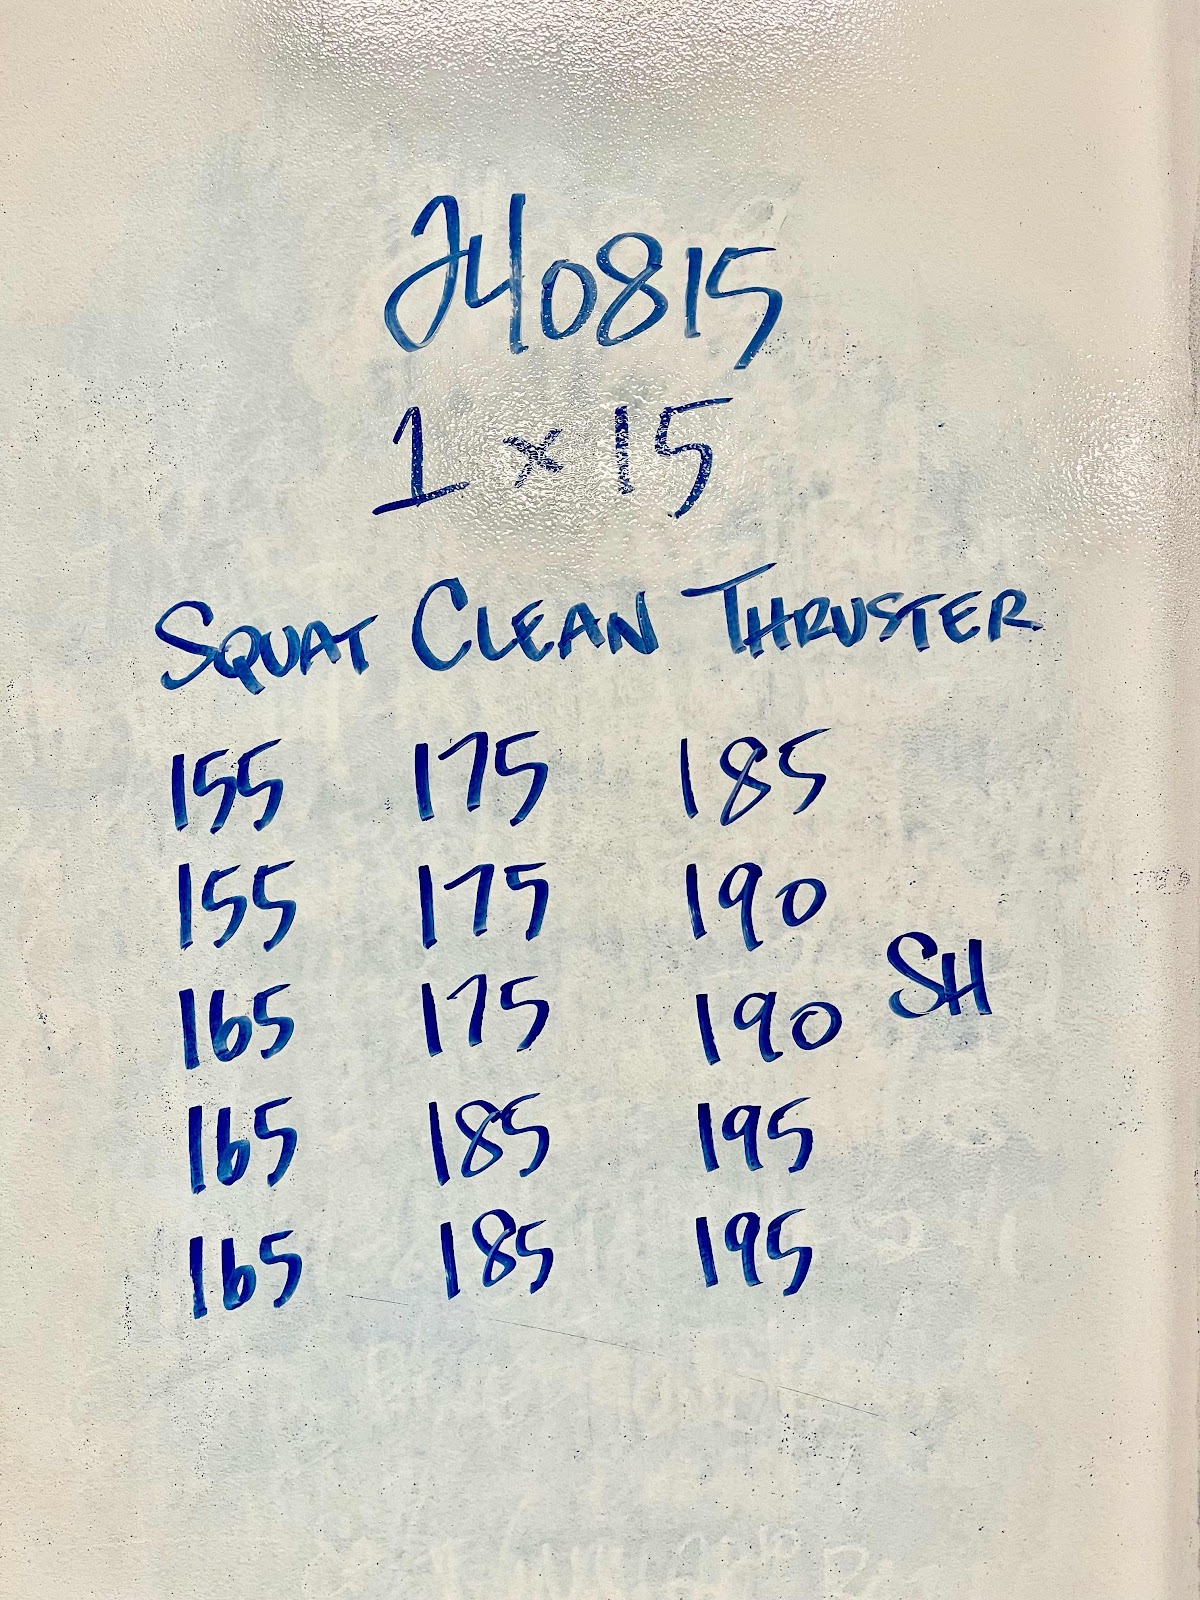 240815
1 × 15
SQUAT CLEAN THRUSTER
155 175 185
155 175 190
165 175 190 SH
165 185 195
165 185 195